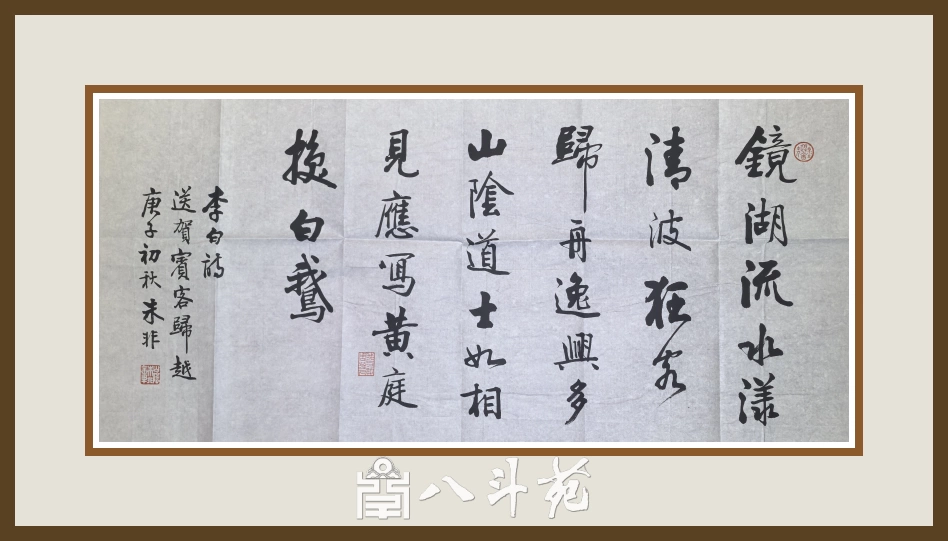 鏡湖流水漾
清波狂客
歸舟逸興多
山陰道士如相
見應寫黃庭
換白鵝
李白詩
送賀賓客歸越
庚子初秋 朱非
八斗苑